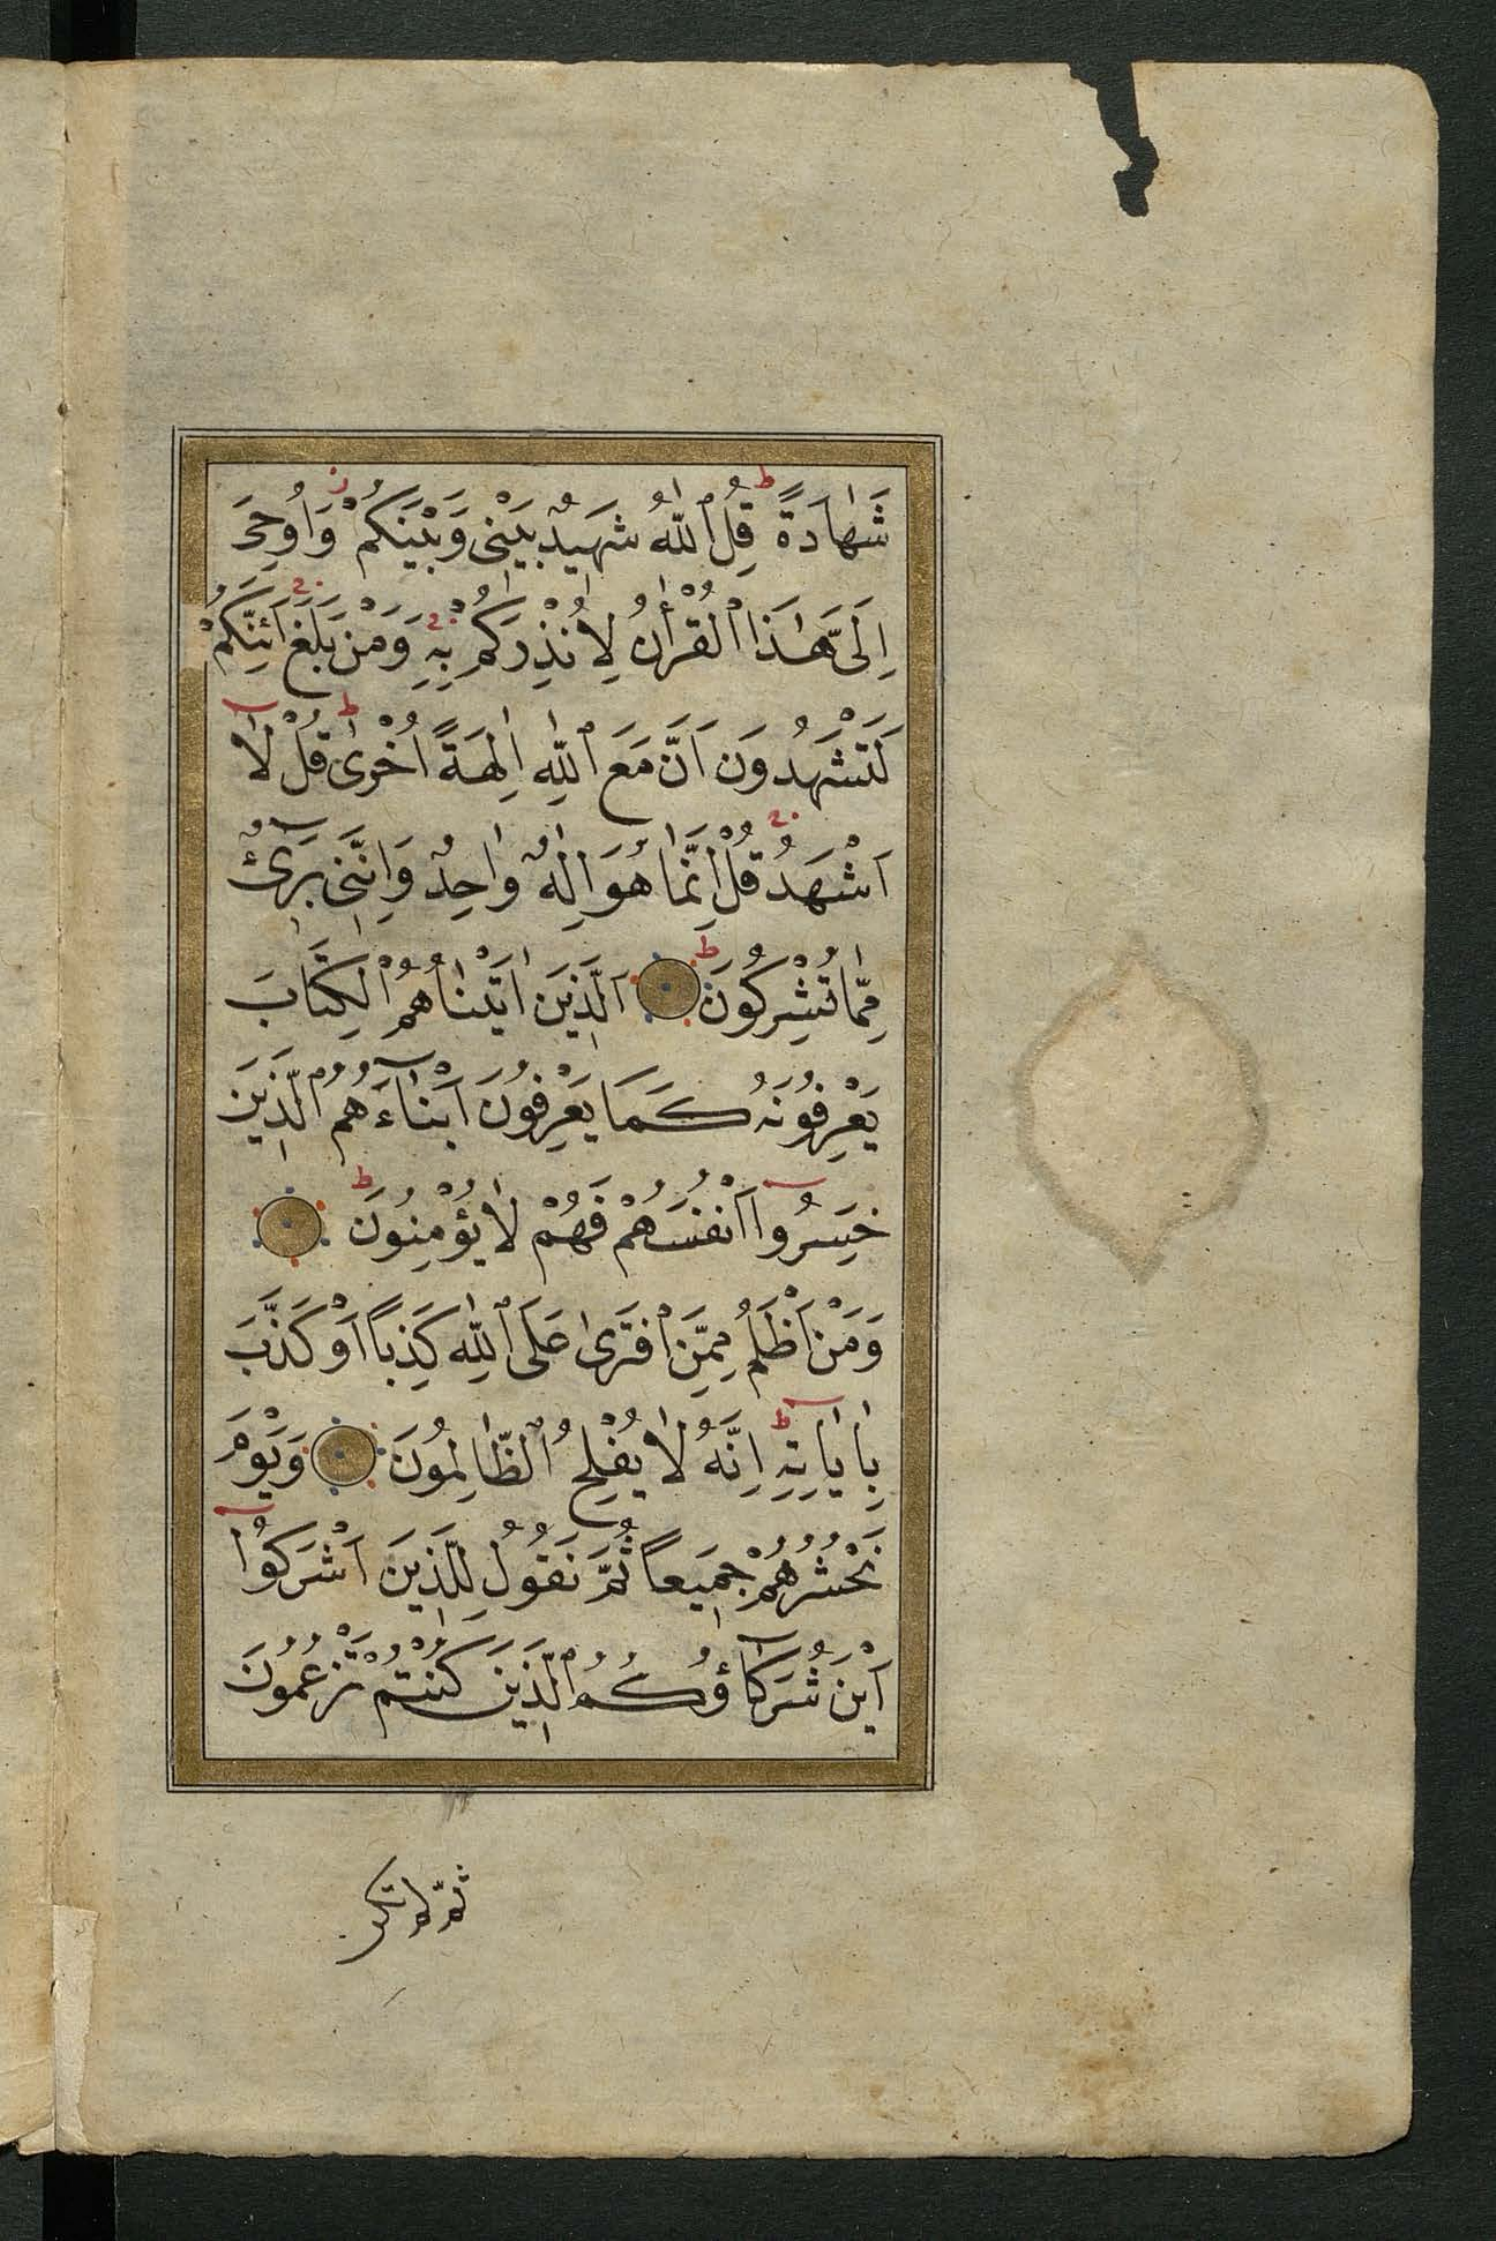 شَهَادَةً قُلِ ٱللّٰهُ شَهِيدٌ بَيْنِى وَبَيْنَكُمْ وَاُوحِىَ
اِلَىَّ هٰذَا ٱلْقُرْاٰنُ لِاُنْذِرَكُمْ بِهِ وَمَنْ بَلَغَ اَئِنَّكُمْ
لَتَشْهَدُونَ اَنَّ مَعَ ٱللّٰهِ اٰلِهَةً اُخْرٰى قُلْ لَآ
اَشْهَدُ قُلْ اِنَّمَا هُوَ اِلٰهٌ وٰاحِدٌ وَاِنَّنِى بَرِىٓءٌ
مِمّٰا تُشْرِكُونَ اَلَّذِينَ اٰتَيْنٰاهُمُ ٱلْكِتَابَ
يَعْرِفُونَهُ كَمَا يَعْرِفُونَ اَبْنآءَهُمُ ٱلَّذِينَ
خَسِرُوٓا اَنْفُسَهُمْ فَهُمْ لٰا يُؤْمِنُونَ
وَمَنْ اَظْلَمُ مِمَّنِ ٱفْتَرٰى عَلَى ٱللّٰهِ كَذِباً اَوْ كَذَّبَ
بِاٰيٰاتِهِ اِنَّهُ لٰا يُفْلِحُ ٱلظّٰالِمُونَ وَيَوْمَ
نَحْشُرُهُمْ جَمِيعاً ثُمَّ نَقُولُ لِلَّذِينَ اَشْرَكُوٓا
اَيْنَ شُرَكَآؤُكُمُ ٱلَّذِينَ كُنْتُمْ تَزْعُمُونَ
ثمّ لم تكن